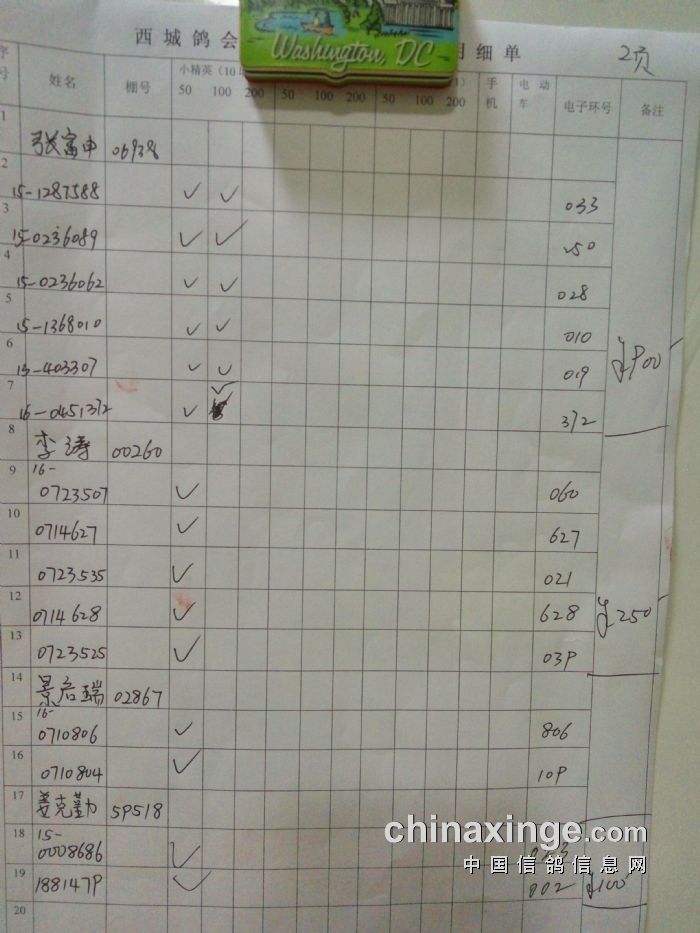 西城鸽会
Washington, DC
明细单
2页
序号
姓名
棚号
小精英（10
50
100
200
50
100
200
50
100
200
手机
电动车
电子环号
备注
1
张富申 06938
2
15-1287588 ✓ ✓ 033
3
15-0236089 ✓ ✓ 50
4
15-0236062 ✓ ✓ 028
5
15-1368010 ✓ ✓ 010
6
15-403307 ✓ ✓ 019
¥900
7
16-0451372 ✓ ✓ 372
8
李涛 00260
9
16-
0723507 ✓ 060
10
0714627 ✓ 627
11
0723535 ✓ 021
12
0714628 ✓ 628
¥250
13
0723525 ✓ 039
14
景启瑞 02867
15
16-
0710806 ✓ 806
16
0710804 ✓ 109
17
姜克勤 59518
chinaxinge.com
中国信鸽信息网
18
15-
0008686 ✓
19
1881479 ✓ 002
¥100
20